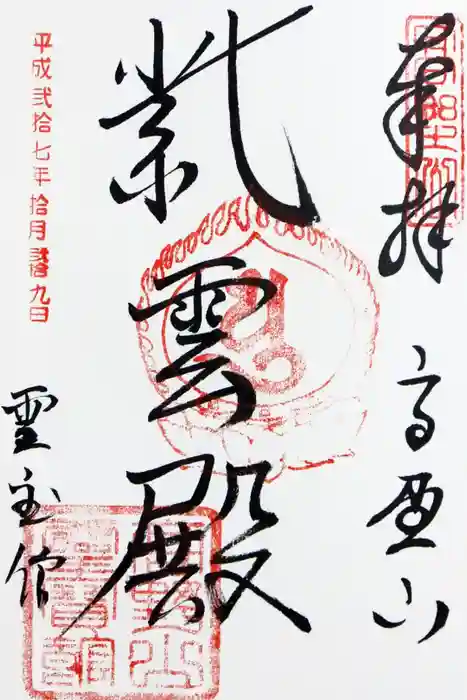 奉拝
高野山
紫雲殿
平成弐拾七年拾月 九日
霊宝館